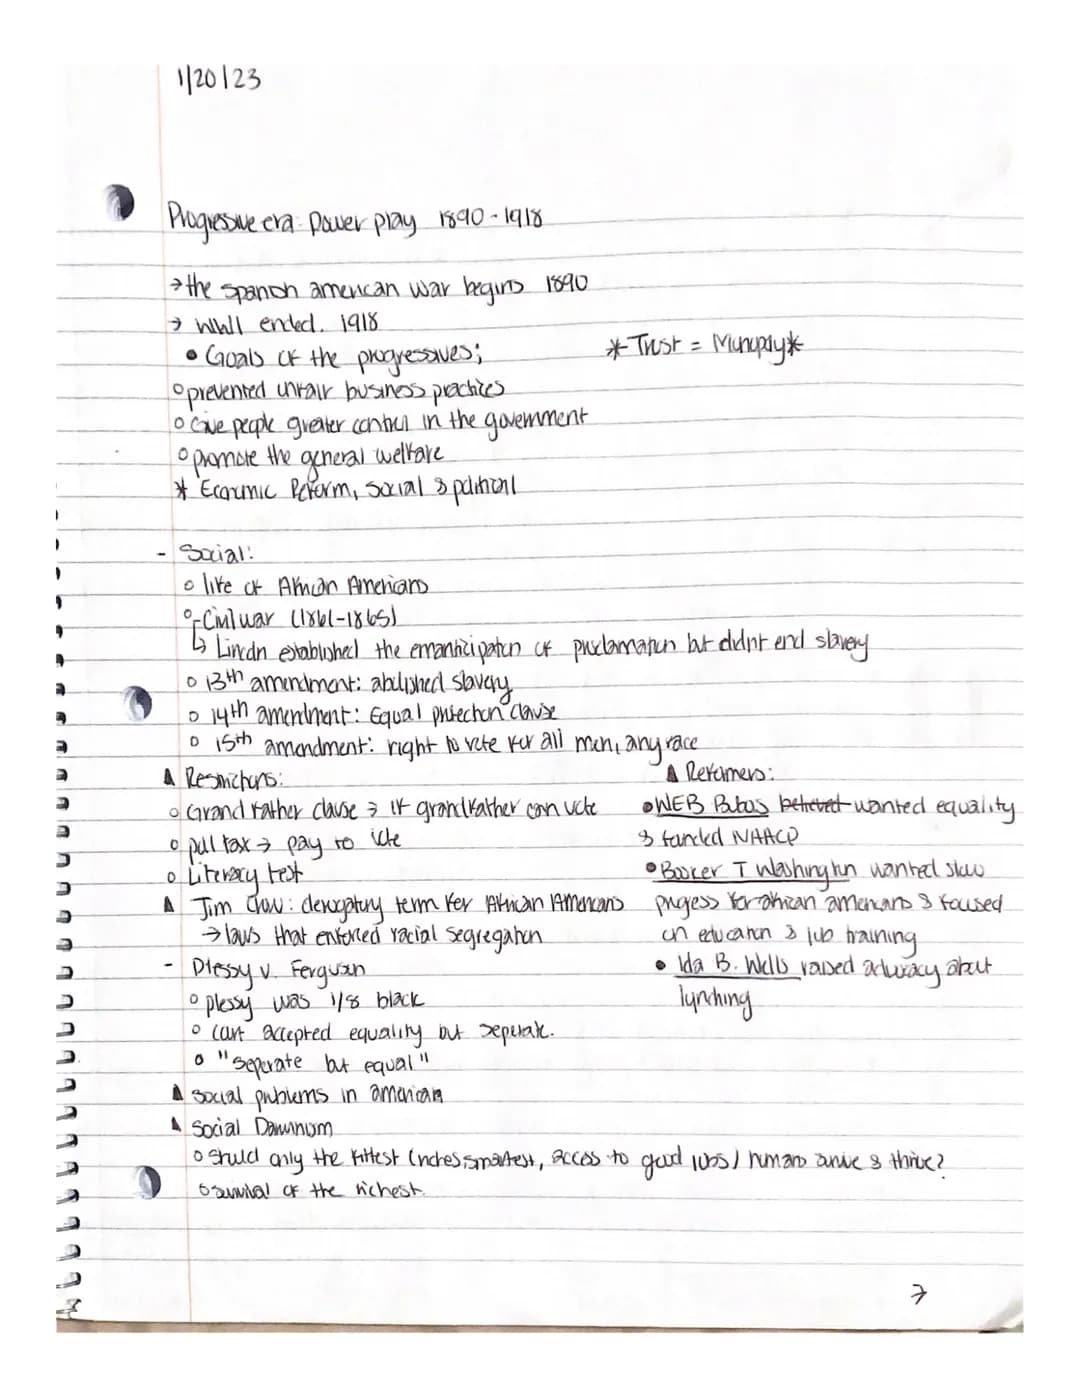 1/20/23
Progressive era: Power play 1890-1918
→ the spanish american war begins 1890
→ WWI ended. 1918
• Goals of the progressives;
* Trust = Monopoly *
○ prevented unfair business practices
○ Give people greater control in the government
○ promote the general welfare
* Economic Reform, social & political
- Social:
○ life of African Americans
○ - Civil war (1861-1865)
↳ Lincoln established the emanticipation of proclamation but didnt end slavery
○ 13th amendment: abolished slavery
○ 14th amendment: Equal protection clause
○ 15th amendment: right to vote for all men, any race
▲ Restrictions:
○ Grandfather clause → if grandfather can vote
○ poll tax → pay to vote
○ Literacy test
▲ Jim Crow: derogatory term for African Americans
→ laws that enforced racial segregation
- Plessy v. Ferguson
○ plessy was 1/8 black
○ court accepted equality but seperate.
○ "seperate but equal"
▲ Reformers:
• WEB Dubois believed wanted equality
& founded NAACP
• Booker T Washington wanted slow
progess for african americans & focused
on education & job training
• Ida B. Wells raised advocacy about
lynching
▲ social problems in american
▲ Social Darwinism
○ should only the fittest (riches, smartest, access to good jobs) humans & thrive?
○ survival of the richest.
→